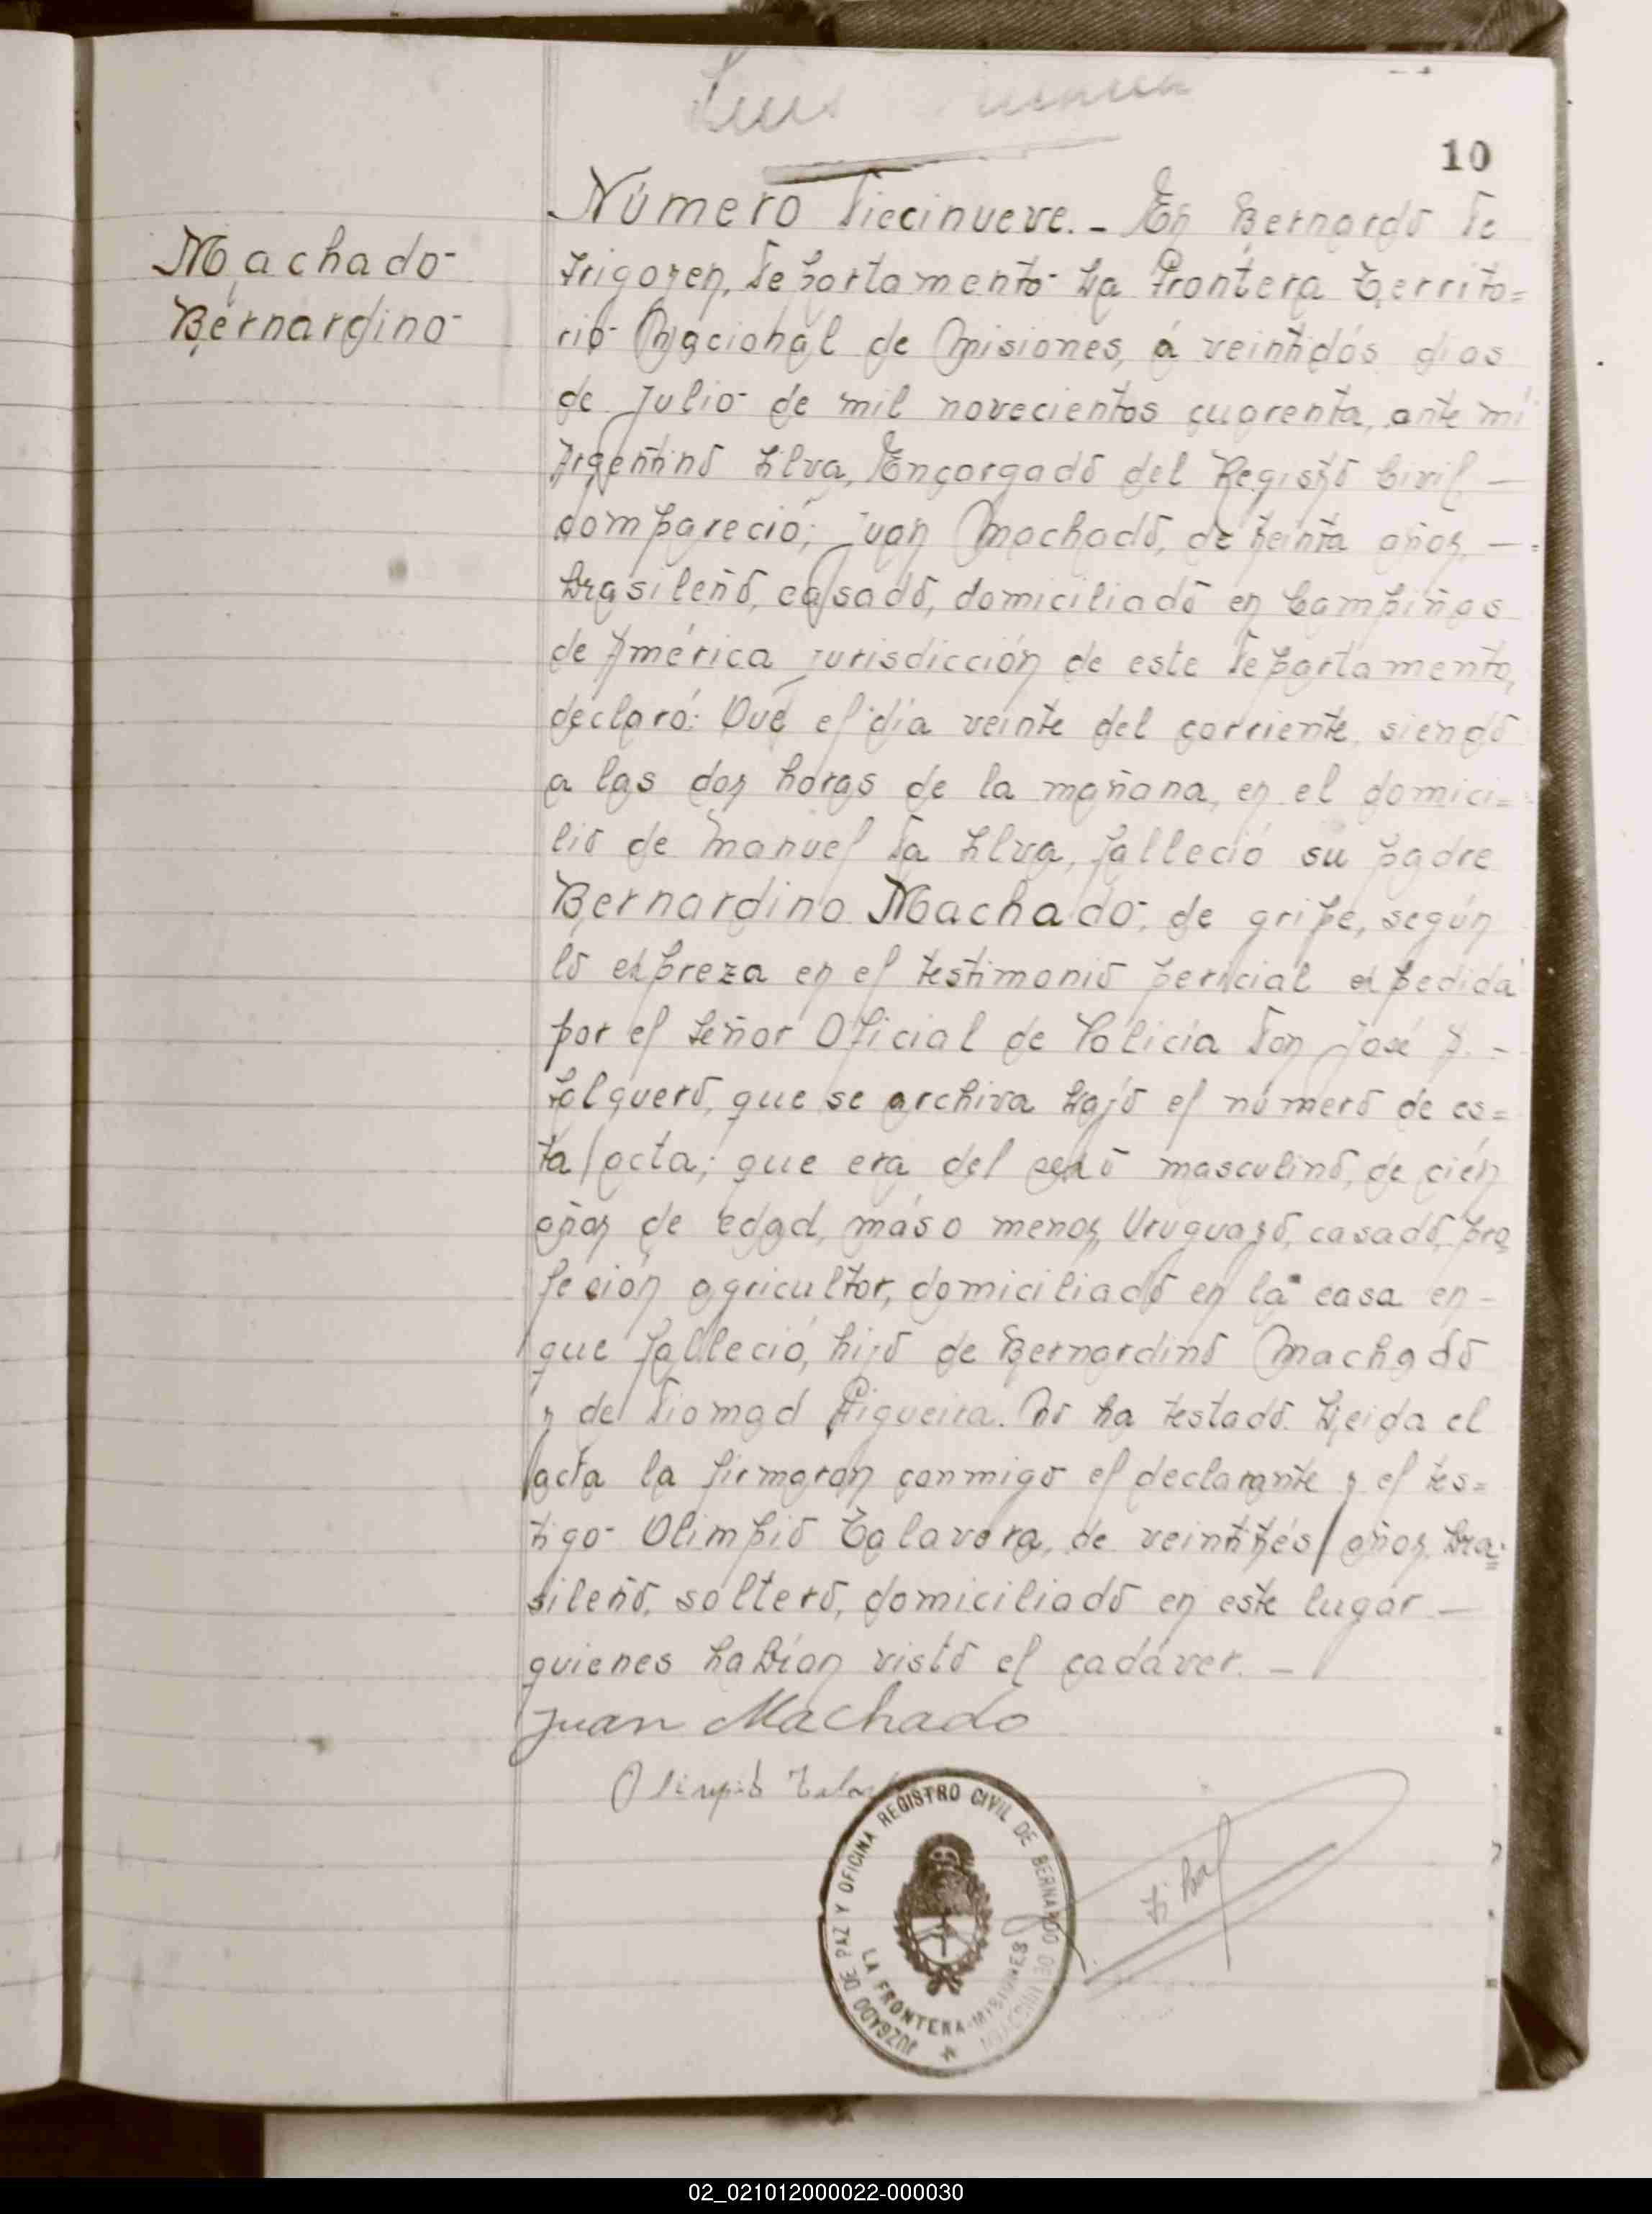 10
Machado
Bernardino
Número Diecinueve. - En Bernardo De
Irigoyen, Departamento La Frontera Territo=
rio Nacional de Misiones, á veintidós dias
de Julio de mil novecientos cuarenta, ante mi
Argentino Silva, Encargado del Registro Civil —
compareció; Juan Machado, de treinta años, —
brasileño, casado, domiciliado en Campiñas
de América jurisdicción de este Departamento,
declaró: Que el día veinte del corriente, siendo
a las dos horas de la mañana, en el domici=
lio de Manuel Da Silva, falleció su padre
Bernardino Machado, de gripe, según
lo expreza en el testimonio pericial expedida
por el Señor Oficial de Policia Don José A. -
Falguero, que se archiva bajo el número de es=
ta acta; que era del sexo masculino, de cién
años de edad, más o menos, Uruguayo, casado, pro
feción agricultor, domiciliado en la casa en -
que falleció, hijo de Bernardino Machado
y de Diomad Figueira. No ha testado. Leida el
acta la firmaron conmigo el declarante y el tes=
tigo Olimpio Talavera, de veintitrés años, bra=
sileño, soltero, domiciliado en este lugar —
quienes habían visto el cadáver. —
Juan Machado
Olimpio
JUZGADO DE PAZ Y OFICINA REGISTRO CIVIL DE BERNARDO DE IRIGOYEN
LA FRONTERA-MISIONES
Silva
02_021012000022-000030